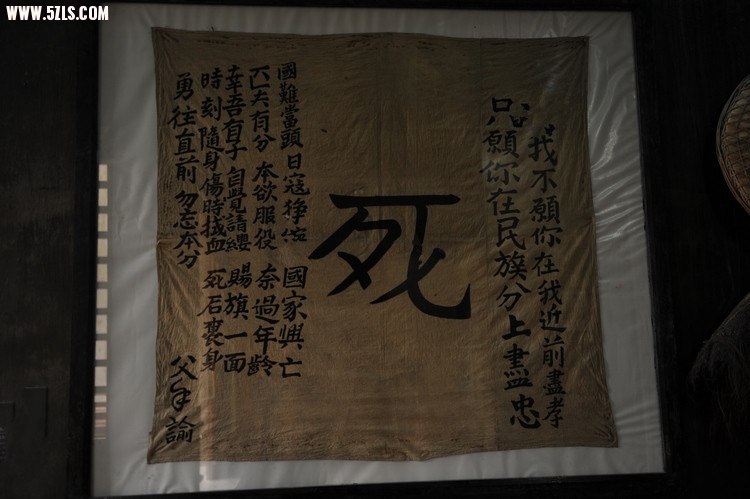 WWW.5ZLS.COM
我不願你在我近前盡孝
只願你在民族分上盡忠
死
國難當頭 日寇猙獰 國家興亡
匹夫有分 本欲服役 奈過年齡
幸吾有子 自覺請纓 賜旗一面
時刻隨身 傷時拭血 死后裹身
勇往直前 勿忘本分
父手諭